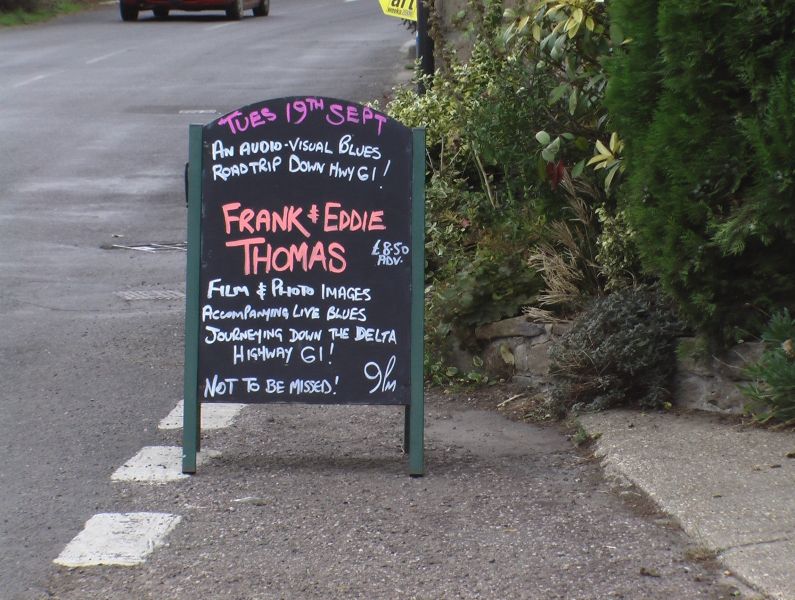 art
weeks
TUES 19TH SEPT
AN AUDIO-VISUAL BLUES
ROADTRIP DOWN HWY 61!
FRANK & EDDIE
THOMAS
£8.50
ADV.
FILM & PHOTO IMAGES
ACCOMPANYING LIVE BLUES
JOURNEYING DOWN THE DELTA
HIGHWAY 61!
NOT TO BE MISSED! 9PM